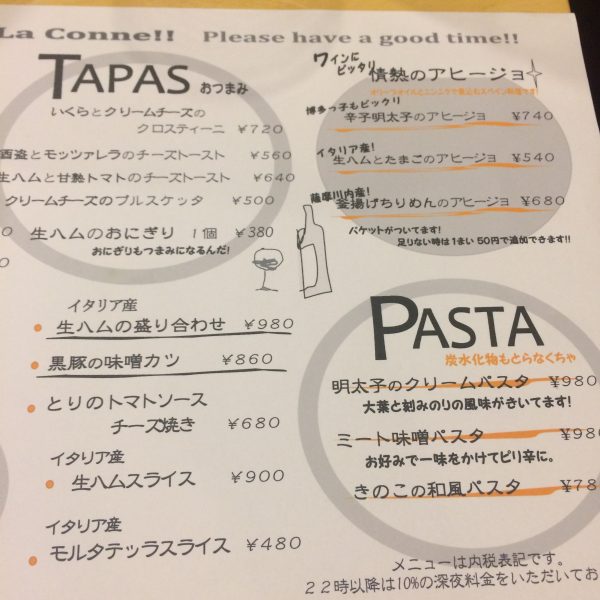 La Conne!! Please have a good time!!
TAPAS おつまみ
いくらとクリームチーズの
クロスティーニ ¥720
酒盗とモッツァレラのチーズトースト ¥560
生ハムと甘熟トマトのチーズトースト ¥640
クリームチーズのブルスケッタ ¥500
生ハムのおにぎり 1個 ¥380
おにぎりもつまみになるんだ!
イタリア産
生ハムの盛り合わせ ¥980
黒豚の味噌カツ ¥860
とりのトマトソース
チーズ焼き ¥680
イタリア産
生ハムスライス ¥900
イタリア産
モルタテッラスライス ¥480
ワインに
ピッタリ
情熱のアヒージョ
オリーブオイルとニンニクで煮込むスペイン料理です!
博多っ子もビックリ
辛子明太子のアヒージョ ¥740
イタリア産!
生ハムとたまごのアヒージョ ¥540
薩摩川内産!
釜揚げちりめんのアヒージョ ¥680
バケットがついてます!
足りない時は1まい 50円で追加できます!!
PASTA
炭水化物もとらなくちゃ
明太子のクリームパスタ ¥980
大葉と刻みのりの風味がきいてます!
ミート味噌パスタ ¥980
お好みで一味をかけてピリ辛に。
きのこの和風パスタ ¥78
メニューは内税表記です。
22時以降は10%の深夜料金をいただいてお